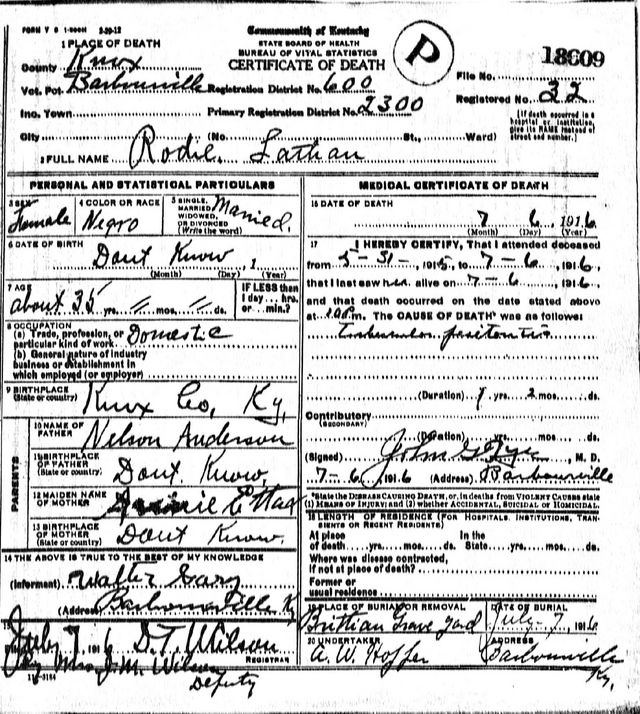 FORM V S 1-500M 3-20-12
Commonwealth of Kentucky
STATE BOARD OF HEALTH
BUREAU OF VITAL STATISTICS
CERTIFICATE OF DEATH
P
18609
1 PLACE OF DEATH
County Knox
Vot. Pct. Barbourville Registration District No. 600
Inc. Town Primary Registration District No. 2300
City (No. St., Ward)
File No.
Registered No. 32
[If death occurred in a hospital or institution, give its NAME instead of street and number.]
2 FULL NAME Rodie Lathan
PERSONAL AND STATISTICAL PARTICULARS
3 SEX Female
4 COLOR OR RACE Negro
5 SINGLE, MARRIED, WIDOWED, OR DIVORCED (Write the word) Married.
6 DATE OF BIRTH Dont Know, 1
(Month) (Day) (Year)
7 AGE about 35 yrs. mos. ds.
IF LESS than 1 day... hrs. or ... min.?
8 OCCUPATION
(a) Trade, profession, or particular kind of work Domestic
(b) General nature of industry business or establishment in which employed (or employer)
9 BIRTHPLACE (State or country) Knox Co, Ky,
PARENTS
10 NAME OF FATHER Nelson Anderson
11 BIRTHPLACE OF FATHER (State or country) Dont Know,
12 MAIDEN NAME OF MOTHER
13 BIRTHPLACE OF MOTHER (State or country) Dont Know.
14 THE ABOVE IS TRUE TO THE BEST OF MY KNOWLEDGE
(Informant) Walter Gary
(Address) Barbourville K
15
July 7, 1916 D. T. Wilson
REGISTRAR
By Mrs J. M. Wilson
Deputy
11-3184
MEDICAL CERTIFICATE OF DEATH
16 DATE OF DEATH
7 6, 1916
(Month) (Day) (Year)
17 I HEREBY CERTIFY, That I attended deceased
from 5-31-, 1915, to 7-6, 1916,
that I last saw her alive on 7-6, 1916
and that death occurred on the date stated above
at m. The CAUSE OF DEATH* was as follows:
(Duration) yrs. 2 mos. ds.
Contributory
(SECONDARY)
(Duration) yrs. mos. ds.
(Signed) John G. Tye, M. D.
7-6, 1916 (Address) Barbourville
*State the DISEASE CAUSING DEATH, or, in deaths from VIOLENT CAUSES state (1) MEANS OF INJURY; and (2) whether ACCIDENTAL, SUICIDAL or HOMICIDAL.
18 LENGTH OF RESIDENCE (FOR HOSPITALS, INSTITUTIONS, TRANSIENTS OR RECENT RESIDENTS)
At place of death....yrs....mos....ds. In the State....yrs....mos....ds.
Where was disease contracted,
If not at place of death?
Former or usual residence
19 PLACE OF BURIAL OR REMOVAL Brittian Grave Yard
DATE OF BURIAL July-7, 1916
20 UNDERTAKER A. W. Hopper
ADDRESS Barbourville Ky.